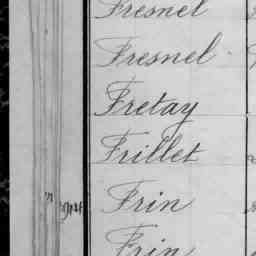 Fresnel
Fresnel
Fretay
Frillet
Frin
Frin